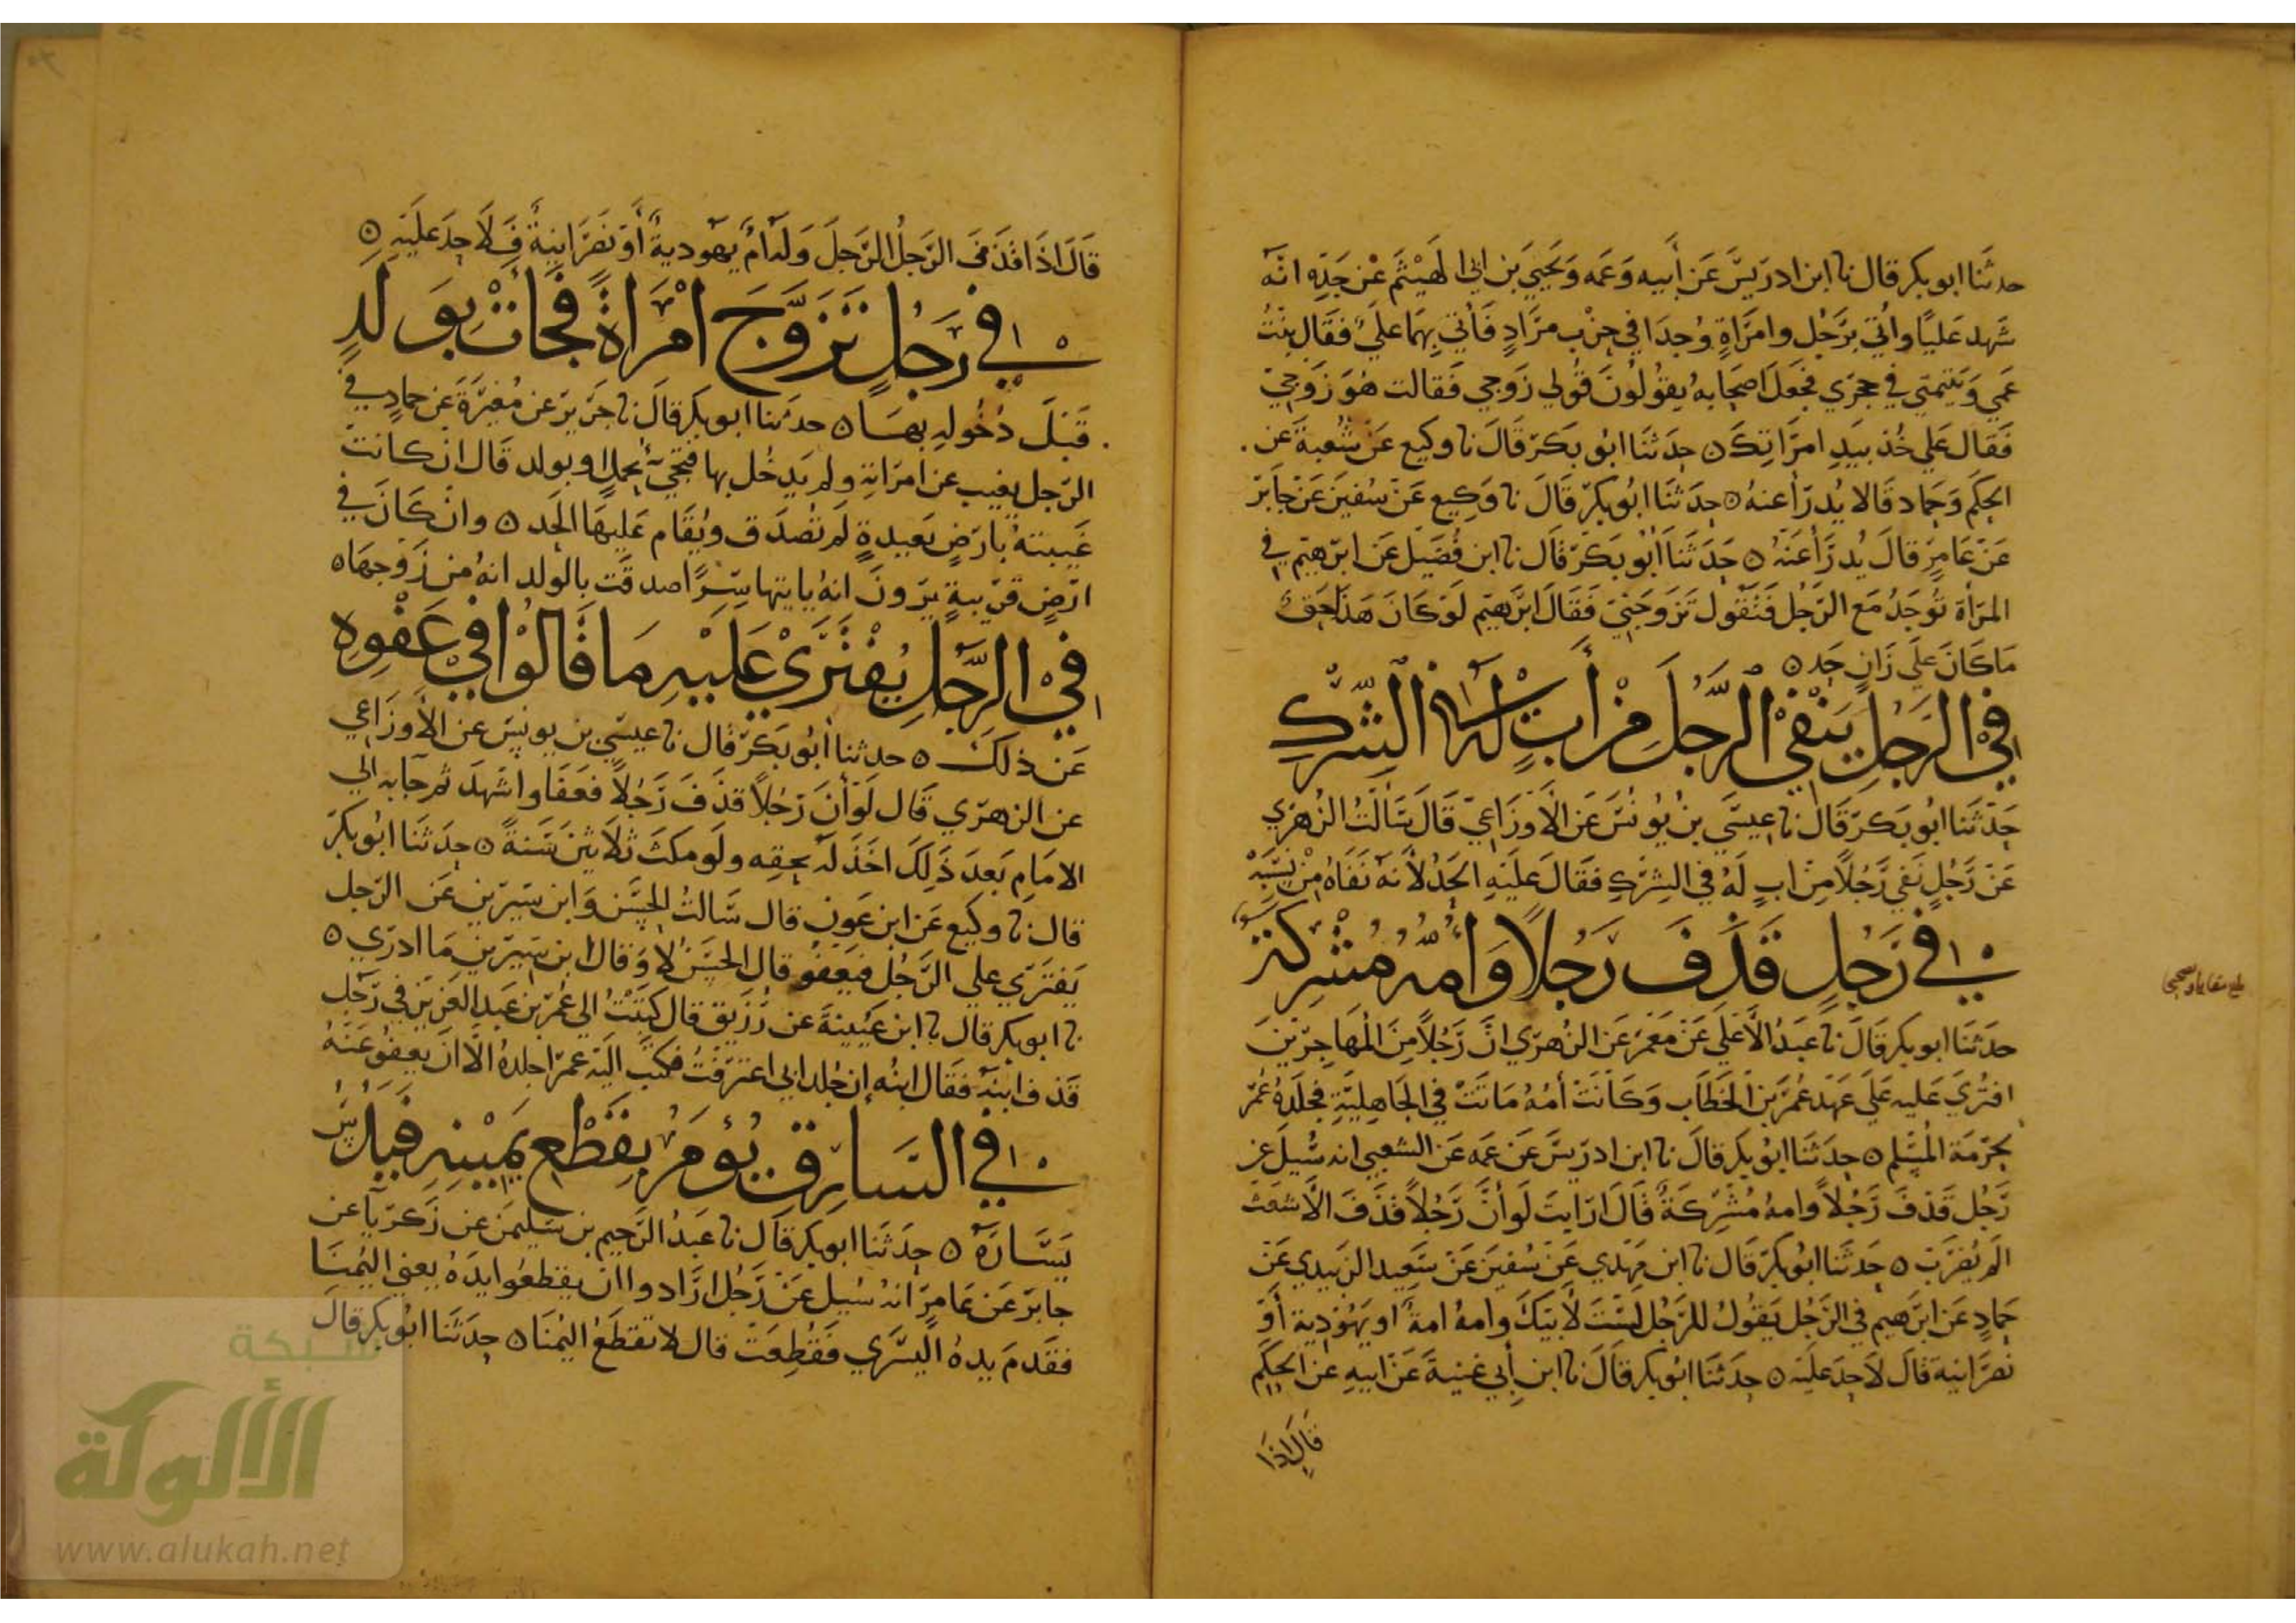 حدثنا ابو بكر قال نا ابن ادريس عن أبيه وعمه ويحيى بن ابي الهيثم عن جده انه
شهد عليا واتي برجل وامراة وجدا في خرب مراد فأتي بهما علي فقال بنت
عمي ويتيمتي في حجري فجعل اصحابه يقولون قولي زوجي فقالت هو زوجي
فقال علي خذ بيد امراتك ه حدثنا ابو بكر قال نا وكيع عن شعبة عن
الحكم وحماد قالا يدرأ عنه ه حدثنا ابو بكر قال نا وكيع عن سفين عن جابر
عن عامر قال يدرأ عنه ه حدثنا أبو بكر قال نا ابن فضيل عن ابرهيم في
المرأة توجد مع الرجل فتقول تزوجني فقال ابرهيم لو كان هذا حقا
ما كان على زان حد ه
في الرجل ينفي الرجل من أب له في الشرك
حدثنا ابو بكر قال نا عيسى بن يونس عن الأوزاعي قال سألت الزهري
عن رجل نفى رجلا من اب له في الشرك فقال عليه الحد لأنه نفاه من نسبه
في رجل قذف رجلا وأمه مشركة
حدثنا ابو بكر قال نا عبد الأعلى عن معمر عن الزهري ان رجلا من المهاجرين
افتري عليه على عهد عمر بن الخطاب وكانت أمه ماتت في الجاهلية فجلده عمر
بحرمة المسلم ه حدثنا ابو بكر قال نا ابن ادريس عن عمه عن الشعبي انه سيل عن
رجل قذف رجلا وامه مشركة قال ارايت لو أن رجلا قذف الأشعث
الم يضرب ه حدثنا ابو بكر قال نا ابن مهدي عن سفين عن سعيد الزبيدي عن
حماد عن ابرهيم في الرجل يقول للرجل لست لأبيك وامه امة او يهودية أو
نصرانية قال لا حد عليه ه حدثنا ابو بكر قال نا ابن أبي غنية عن ابيه عن الحكم
قال اذا
قال اذا قذف الرجل الرجل وله ام يهودية أو نصرانية فلا حد عليه ه
في رجل تزوج امرأة فجات بولد
قبل دخوله بها ه حدثنا ابو بكر قال نا جرير عن مغيرة عن حماد في
الرجل يغيب عن امراته ولم يدخل بها فتجي بحمل او بولد قال ان كانت
غيبته بارض بعيدة لم تصدق ويقام عليها الحد ه وان كان في
ارض قريبة يرون انه ياتيها سرا صدقت بالولد انه من زوجها ه
في الرجل يفترى عليه ما قالوا في عفوه
عن ذلك ه حدثنا أبو بكر قال نا عيسى بن يونس عن الأوزاعي
عن الزهري قال لو أن رجلا قذف رجلا فعفا واشهد ثم جا به الى
الامام بعد ذلك اخذ له بحقه ولو مكث ثلاثين سنة ه حدثنا ابو بكر
قال نا وكيع عن ابن عون قال سالت الحسن وابن سيرين عن الرجل
يفتري على الرجل فيعفو قال الحسن لا وقال ابن سيرين ما ادري ه
نا ابو بكر قال نا ابن عيينة عن رزيق قال كتبت الى عمر بن عبد العزيز في رجل
قذف ابنه فقال ابنه إن جلد ابي اعترفت فكتب اليه عمر اجلده الا ان يعفو عنه
في السارق يؤمر بقطع يمينه فيدس
يساره ه حدثنا ابو بكر قال نا عبد الرحيم بن سليمن عن زكريا عن
جابر عن عامر انه سيل عن رجل ارادوا ان يقطعوا يده يعني اليمنا
فقدم يده اليسرى فقطعت قال لا تقطع اليمنا ه حدثنا ابو بكر قال
شبكة
الألوكة
www.alukah.net